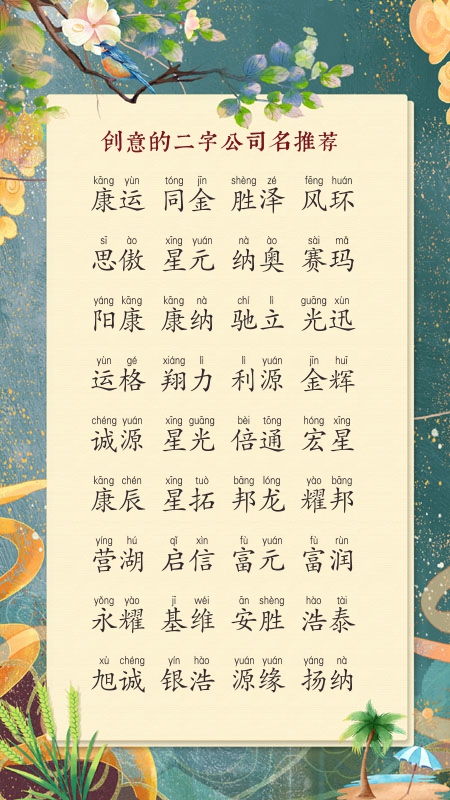 创意的二字公司名推荐
kāng yùn tóng jīn shèng zé fēng huán
康运 同金 胜泽 风环
sī ào xīng yuán nà ào sài mǎ
思傲 星元 纳奥 赛玛
yáng kāng kāng nà chí lì guāng xùn
阳康 康纳 驰立 光迅
yùn gé xiáng lì lì yuán jīn huī
运格 翔力 利源 金辉
chéng yuán xīng guāng bèi tōng hóng xīng
诚源 星光 倍通 宏星
kāng chén xīng tuò bāng lóng yào bāng
康辰 星拓 邦龙 耀邦
yíng hú qǐ xìn fù yuán fù rùn
营湖 启信 富元 富润
yǒng yào jī wéi ān shèng hào tài
永耀 基维 安胜 浩泰
xù chéng yín hào yuán yuán yáng nà
旭诚 银浩 源缘 扬纳